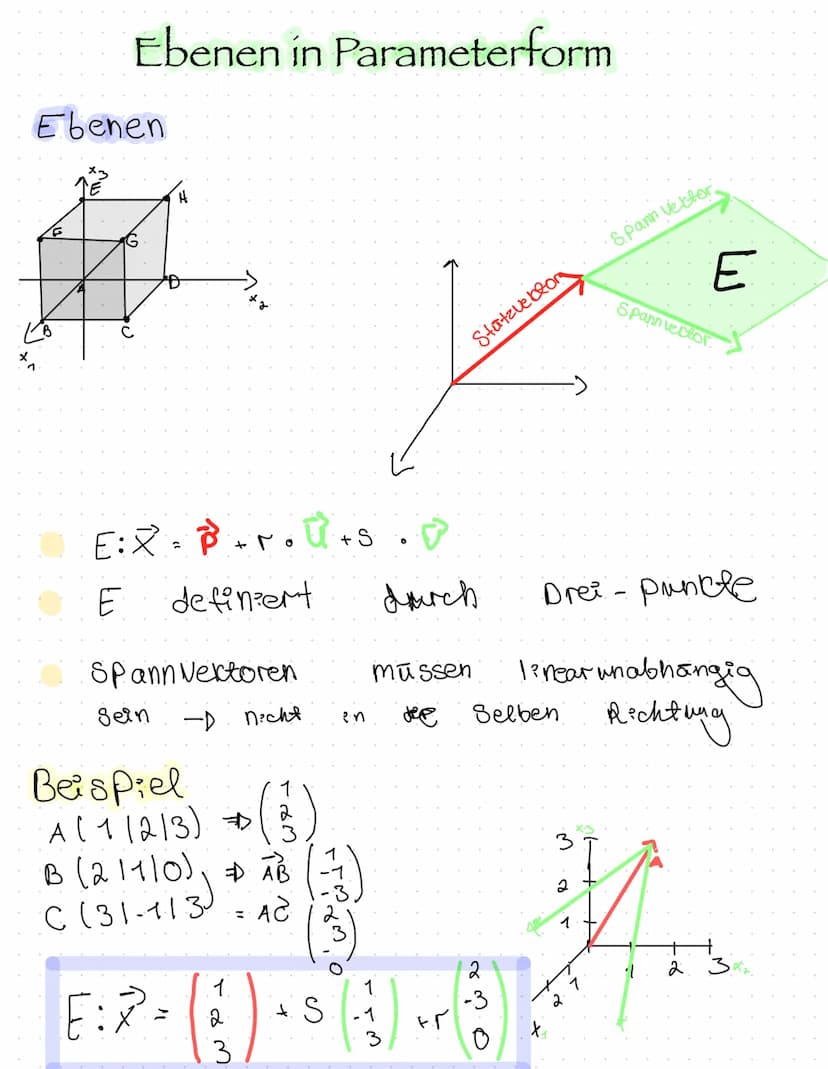 Ebenen in Parameterform
Ebenen
x₃
E
H
F
G
A
D
x₂
B
C
x₁
Spannvektor
E
Stützvektor
Spannvektor
E: x⃗ = p⃗ + r · u⃗ + s · v⃗
E definiert durch Drei - punkte
Spannvektoren müssen linear unabhängig
sein → nicht in die selben Richtung
Beispiel
A (1|2|3) ⇒ (1 2 3)
B (2|1|0) ⇒ AB⃗ (1 -1 -3)
C (3|-1|3) = AC⃗ (2 -3 0)
E: x⃗ = (1 2 3) + s (1 -1 3) + r (2 -3 0)
3 x₃
A
2
1
1 2 3 x₂
1
2
x₁